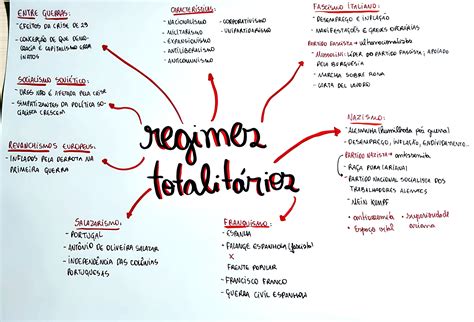 ENTRE GUERRAS:
- EFEITOS DA CRISE DE 29
- CONCEPÇÃO DE QUE DEMO-
CRACIA E CAPITALISMO ERAM
INATOS
SOCIALISMO SOVIÉTICO:
- URSS NÃO É AFETADA PELA CRISE
- SIMPATIZANTES DA POLÍTICA SO-
CRESCEM
REVANCHISMOS EUROPEUS:
- INFLADOS PELA DERROTA NA
PRIMEIRA GUERRA
CARACTERÍSTICAS:
- NACIONALISMO
- MILITARISMO
- EXPANSIONISMO
- ANTILIBERALISMO
- ANTICOMUNISMO
- CORPORATIVISMO
- UNIPARTIDARISMO
FASCISMO ITALIANO:
- DESEMPREGO E INFLAÇÃO
- MANIFESTAÇÕES E GREVES OPERÁRIAS
PARTIDO FASCISTA → ultranacionalista
- MUSSOLINI: LÍDER DO PARTIDO FASCISTA; APOIADO
PELA BURGUESIA
- MARCHA SOBRE ROMA
- CARTA DEL LAVORO
regimes
totalitários
NAZISMO:
- ALEMANHA (humilhada pós guerra)
- DESEMPREGO, INFLAÇÃO, ENDIVIDAMENTO...
PARTIDO NAZISTA → antissemita
- RAÇA PURA (ARIANA)
→ PARTIDO NACIONAL SOCIALISTA DOS
TRABALHADORES ALEMÃES
- MEIN KAMPF
• antissemitismo • superioridade
• Espaço vital ariana
SALAZARISMO:
- PORTUGAL
- ANTÔNIO DE OLIVEIRA SALAZAR
- INDEPENDÊNCIA DAS COLÔNIAS
PORTUGUESAS
FRANQUISMO:
- ESPANHA
- FALANGE ESPANHOLA (fascista)
X
FRENTE POPULAR
- FRANCISCO FRANCO
- GUERRA CIVIL ESPANHOLA